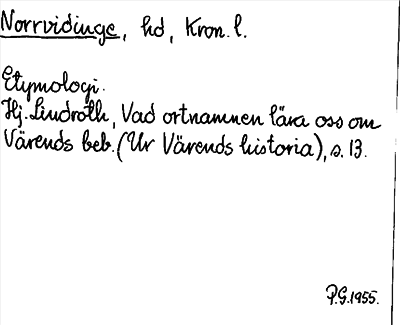 Norrvidinge, hd, Kron. l.
Etymologi.
Hj. Lindroth, Vad ortnamnen lära oss om
Värends beb. (Ur Värends historia), s. 13.
P.G. 1955.